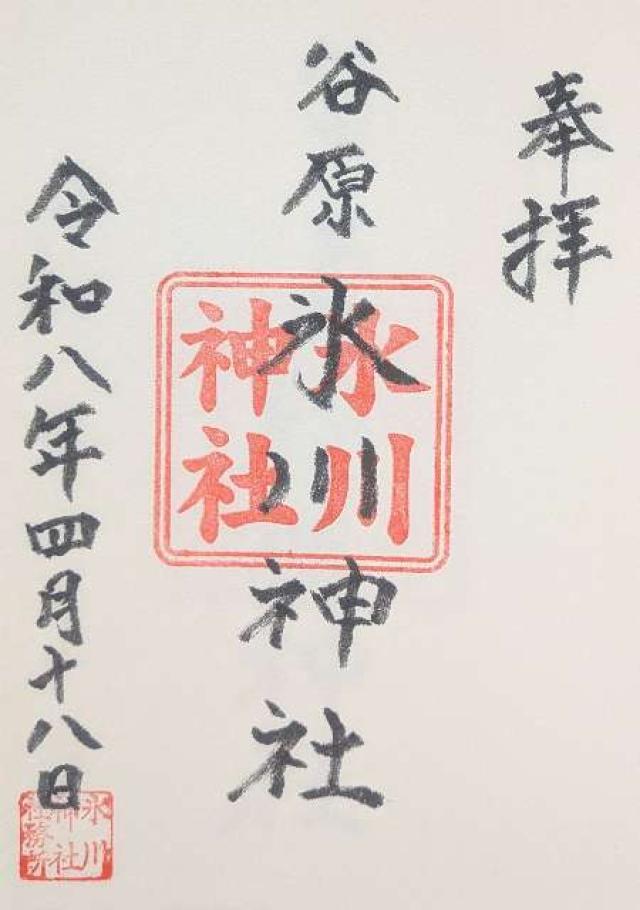 奉拝
谷原氷川神社
氷川
神社
令和八年四月十八日
氷川
神社
社務所